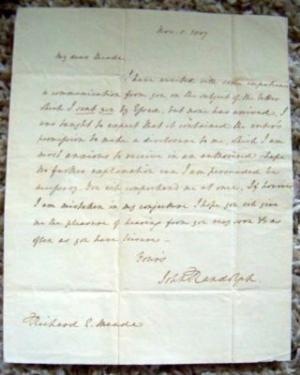 Nov. 5. 1807
My dear Meade.
I have waited with utter impatience
a communication from you on the subject of the letter
which I sent you by Epead, but none has arrived. I
was taught to expect that it contained the writer's
permission to make a disclosure to me, which I am
most anxious to receive in an authorised shape
No further explanation can I am persuaded be
necessary. You will comprehend me at once. If however
I am mistaken in my conjecture I hope you will give
me the pleasure of hearing from you very soon & as
often as you have leisure.—
Yours
John Randolph.
Richard C. Meade